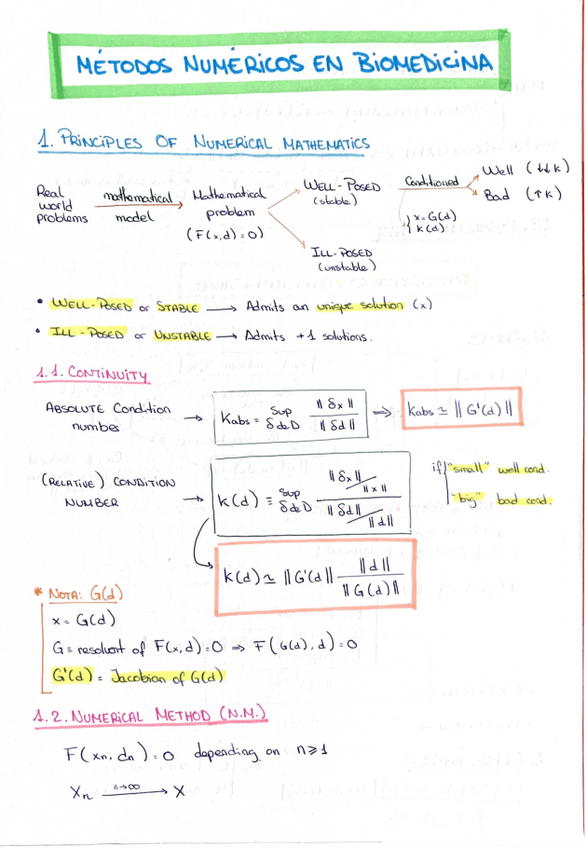 MÉTODOS NUMÉRICOS EN BIOMEDICINA
1. PRINCIPLES OF NUMERICAL MATHEMATICS
Real world problems → mathematical model → Mathematical problem (F(x,d)=0)
WELL-POSED (stable)
Conditioned
Well (↓↓k)
Bad (↑k)
{ x=G(d)
k(d)
ILL-POSED (unstable)
• WELL-POSED or STABLE → Admits an unique solution (x)
• ILL-POSED or UNSTABLE → Admits +1 solutions.
1.1. CONTINUITY
ABSOLUTE Condition number → Kabs = Sup δd∈D ‖δx‖ / ‖δd‖ ⇒ Kabs ≃ ‖G'(d)‖
(RELATIVE) CONDITION NUMBER → K(d) = Sup δd∈D (‖δx‖/‖x‖) / (‖δd‖/‖d‖)
if { "small" well cond.
"big" bad cond.
K(d) ≃ ‖G'(d)‖ ‖d‖ / ‖G(d)‖
* NOTA: G(d)
x = G(d)
G = resolvent of F(x,d)=0 ⇒ F(G(d), d)=0
G'(d) = Jacobian of G(d)
1.2. NUMERICAL METHOD (N.M.)
F(xn, dn)=0 depending on n≥1
Xn n→∞ → X